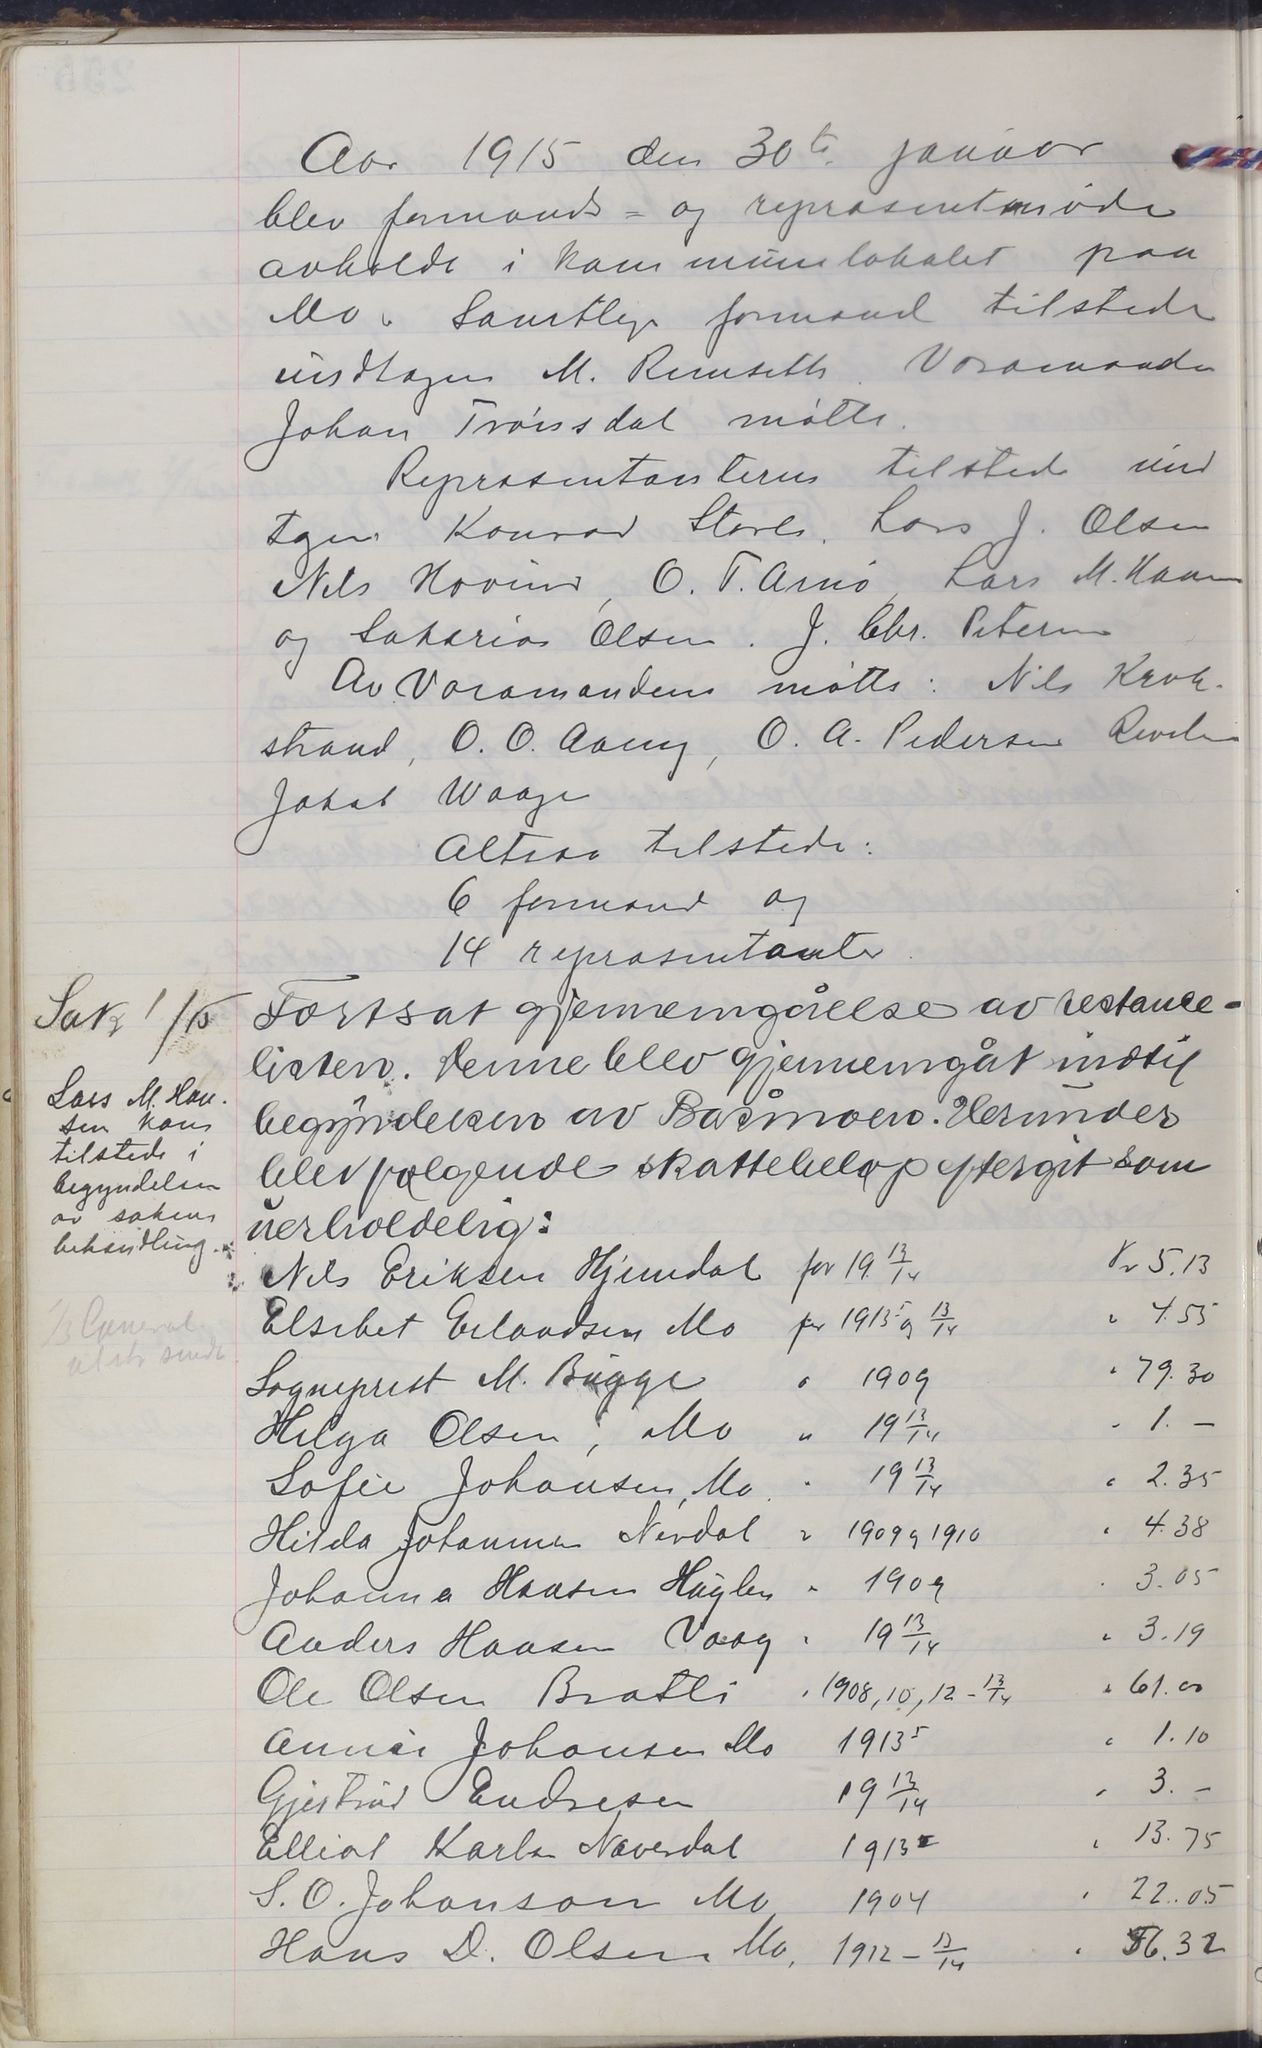 Aar 1915 den 30te januar
blev formands- og repræsentmøde
avholdt i kommunelokalet paa
Mo. Samtlige formænd tilstede
undtagen M. Remseth. Varamanden
Johan Trönsdal mötte.
Repræsentanterne tilstede und
tagen Konrad Storli, Lars J. Olsen
Nils Hovind, O. T. Arnö, Lars M. Hansen
og Sakarias Olsen. J. Chr. Petersen
Av Varamændene mötte: Nils Krok-
strand, O. O. Aaeng, O. A. Pedersen Revelen
Jakob Waage
Altsaa tilstede:
6 formænd og
14 repræsentanter.
Sak 1/15
Fortsat gjennemgåelse av restance-
listen. Denne blev gjennemgåt indtil
begyndelsen av Båsmoen. Herunder
blev følgende skattebeløp eftergit som
uerholdelig:
Lars M. Han-
sen kom
tilstede i
begyndelsen
av sakens
behandling.
Nils Eriksen Hjemdal for 19 13/14 Kr 5.13
Elsebet Erlandsen Mo for 1913⁵ og 13/14 " 4.55
Sogneprest M. Bugge " 1909 " 79.30
Helga Olsen, Mo " 19 13/14 " 1. –
Sofie Johansen, Mo. " 19 13/14 " 2.35
Hilda Johannesen Nevdal " 1909 og 1910 " 4.38
Johanna Hansen Haugen " 1909 " 3.05
Anders Hansen Vaag " 19 13/14 " 3.19
Ole Olsen Bratli " 1908, 10, 12 – 13/14 " 61.00
Annie Johansen Mo 1913⁵ " 1.10
Gjertrud Endresen 19 13/14 " 3. –
Elliot Karlsen Næverdal 1913 " 13.75
S. O. Johanson Mo 1904 " 22.05
Hans D. Olsen Mo, 1912 – 13/14 " 56.32